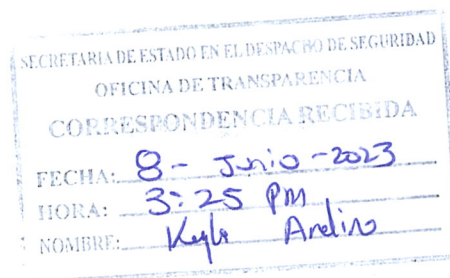 SECRETARIA DE ESTADO EN EL DESPACHO DE SEGURIDAD
OFICINA DE TRANSPARENCIA
CORRESPONDENCIA RECIBIDA
FECHA: 8 - Junio - 2023
HORA: 3:25 PM
NOMBRE: Andino